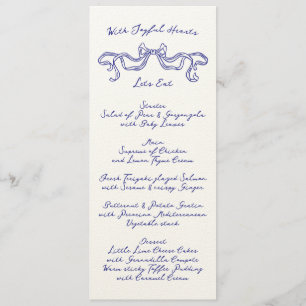 With Joyful Hearts
Let's Eat
Starter
Salad of Pear & Gorgonzola
with Baby Leaves
Main
Supreme of Chicken
and Lemon Thyme Cream
Fresh Teriyaki glazed Salmon
with Sesame & crispy Ginger
Butternut & Potato Gratin
with Peruvian Mediterranean
Vegetable stack
Dessert
Little Lime Cheese Cakes
with Granadilla Compote
Warm sticky Toffee Pudding
with Caramel Cream